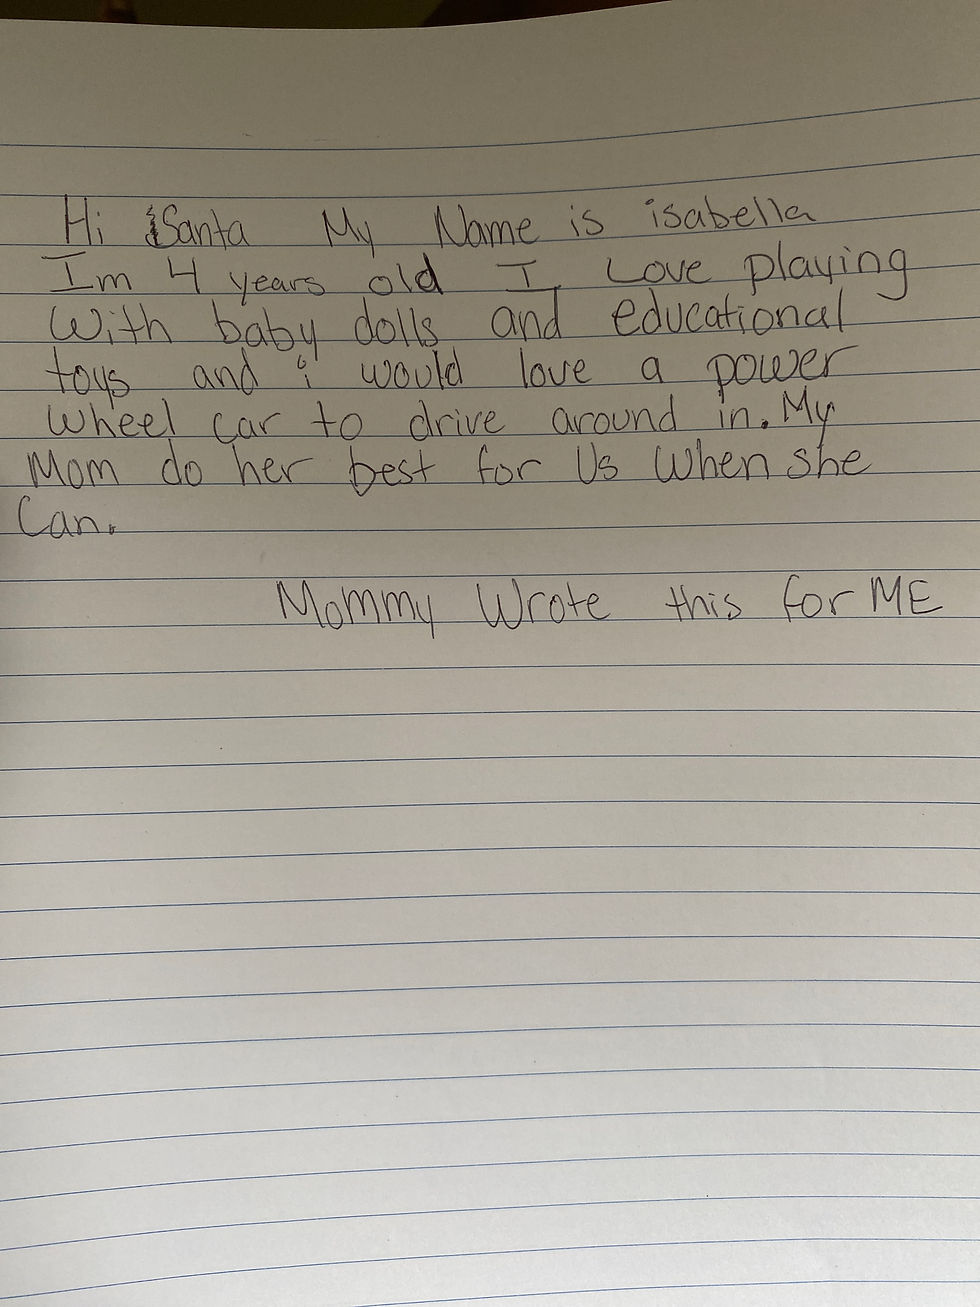 Hi Santa My Name is isabella
Im 4 years old I Love playing
With baby dolls and educational
toys and i would love a power
Wheel car to drive around in. My
Mom do her best for Us When she
Can.
Mommy Wrote this for ME